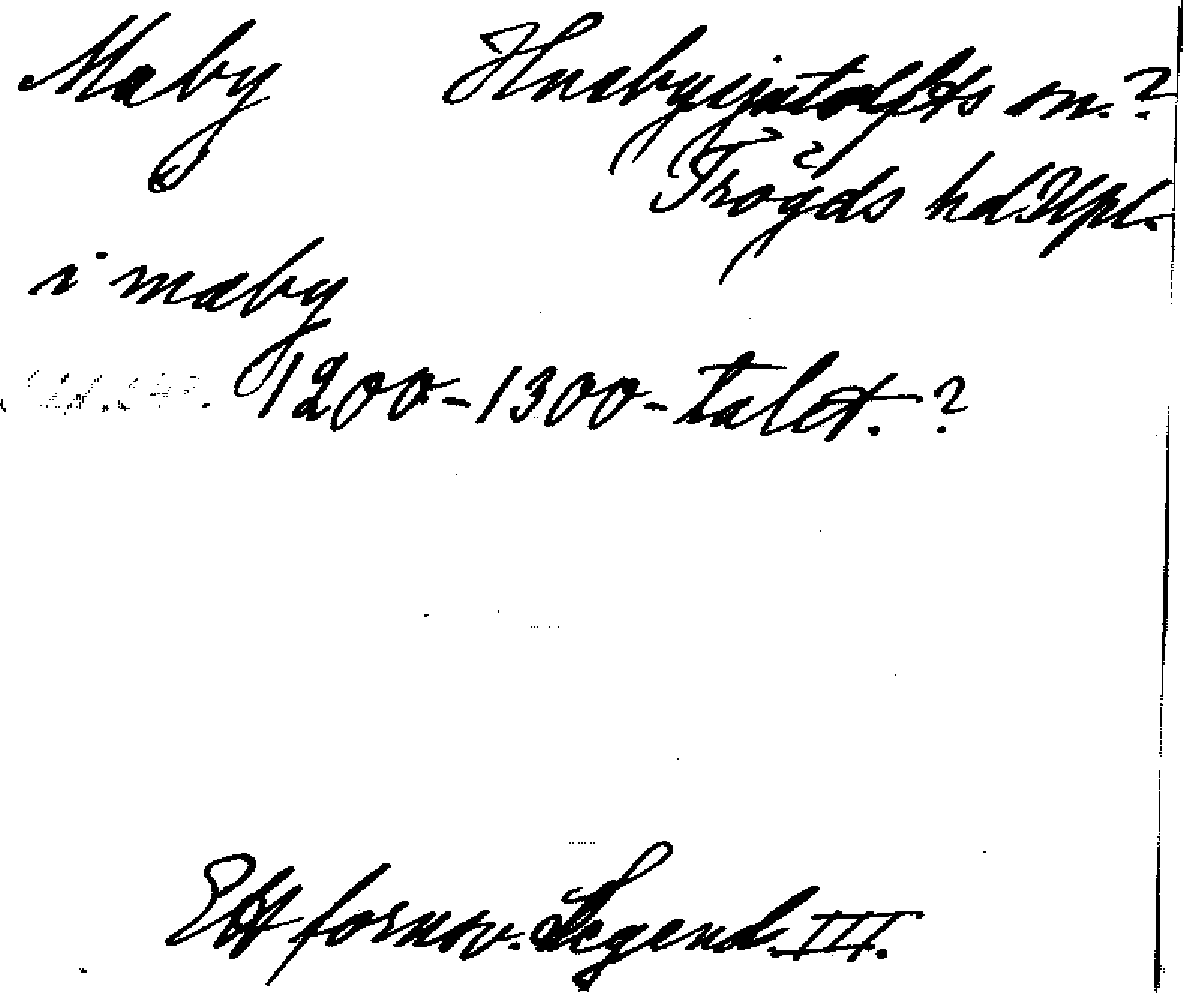 Maby Husbysjutolfts sn.?
Trögds hd Upl.
i mæby
1200-1300-talet. ?
Ett fornsv. Legend. III.